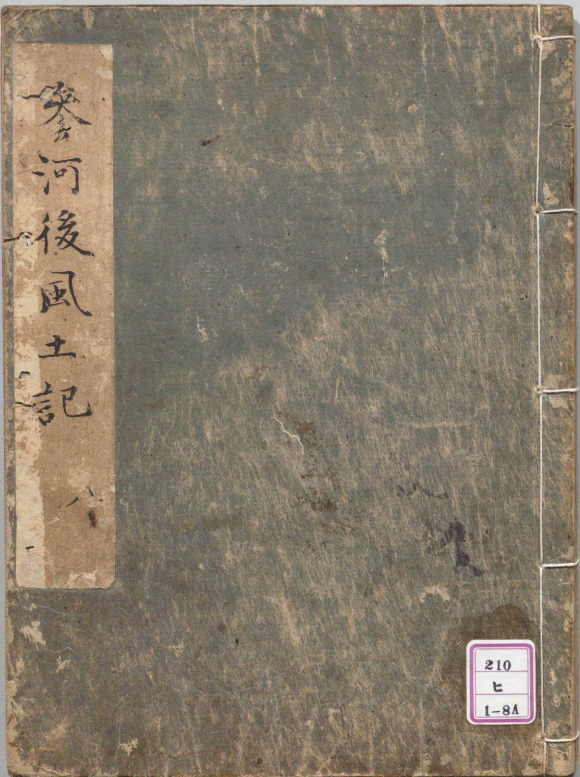 參河後風土記
八
210
ヒ
1-8A